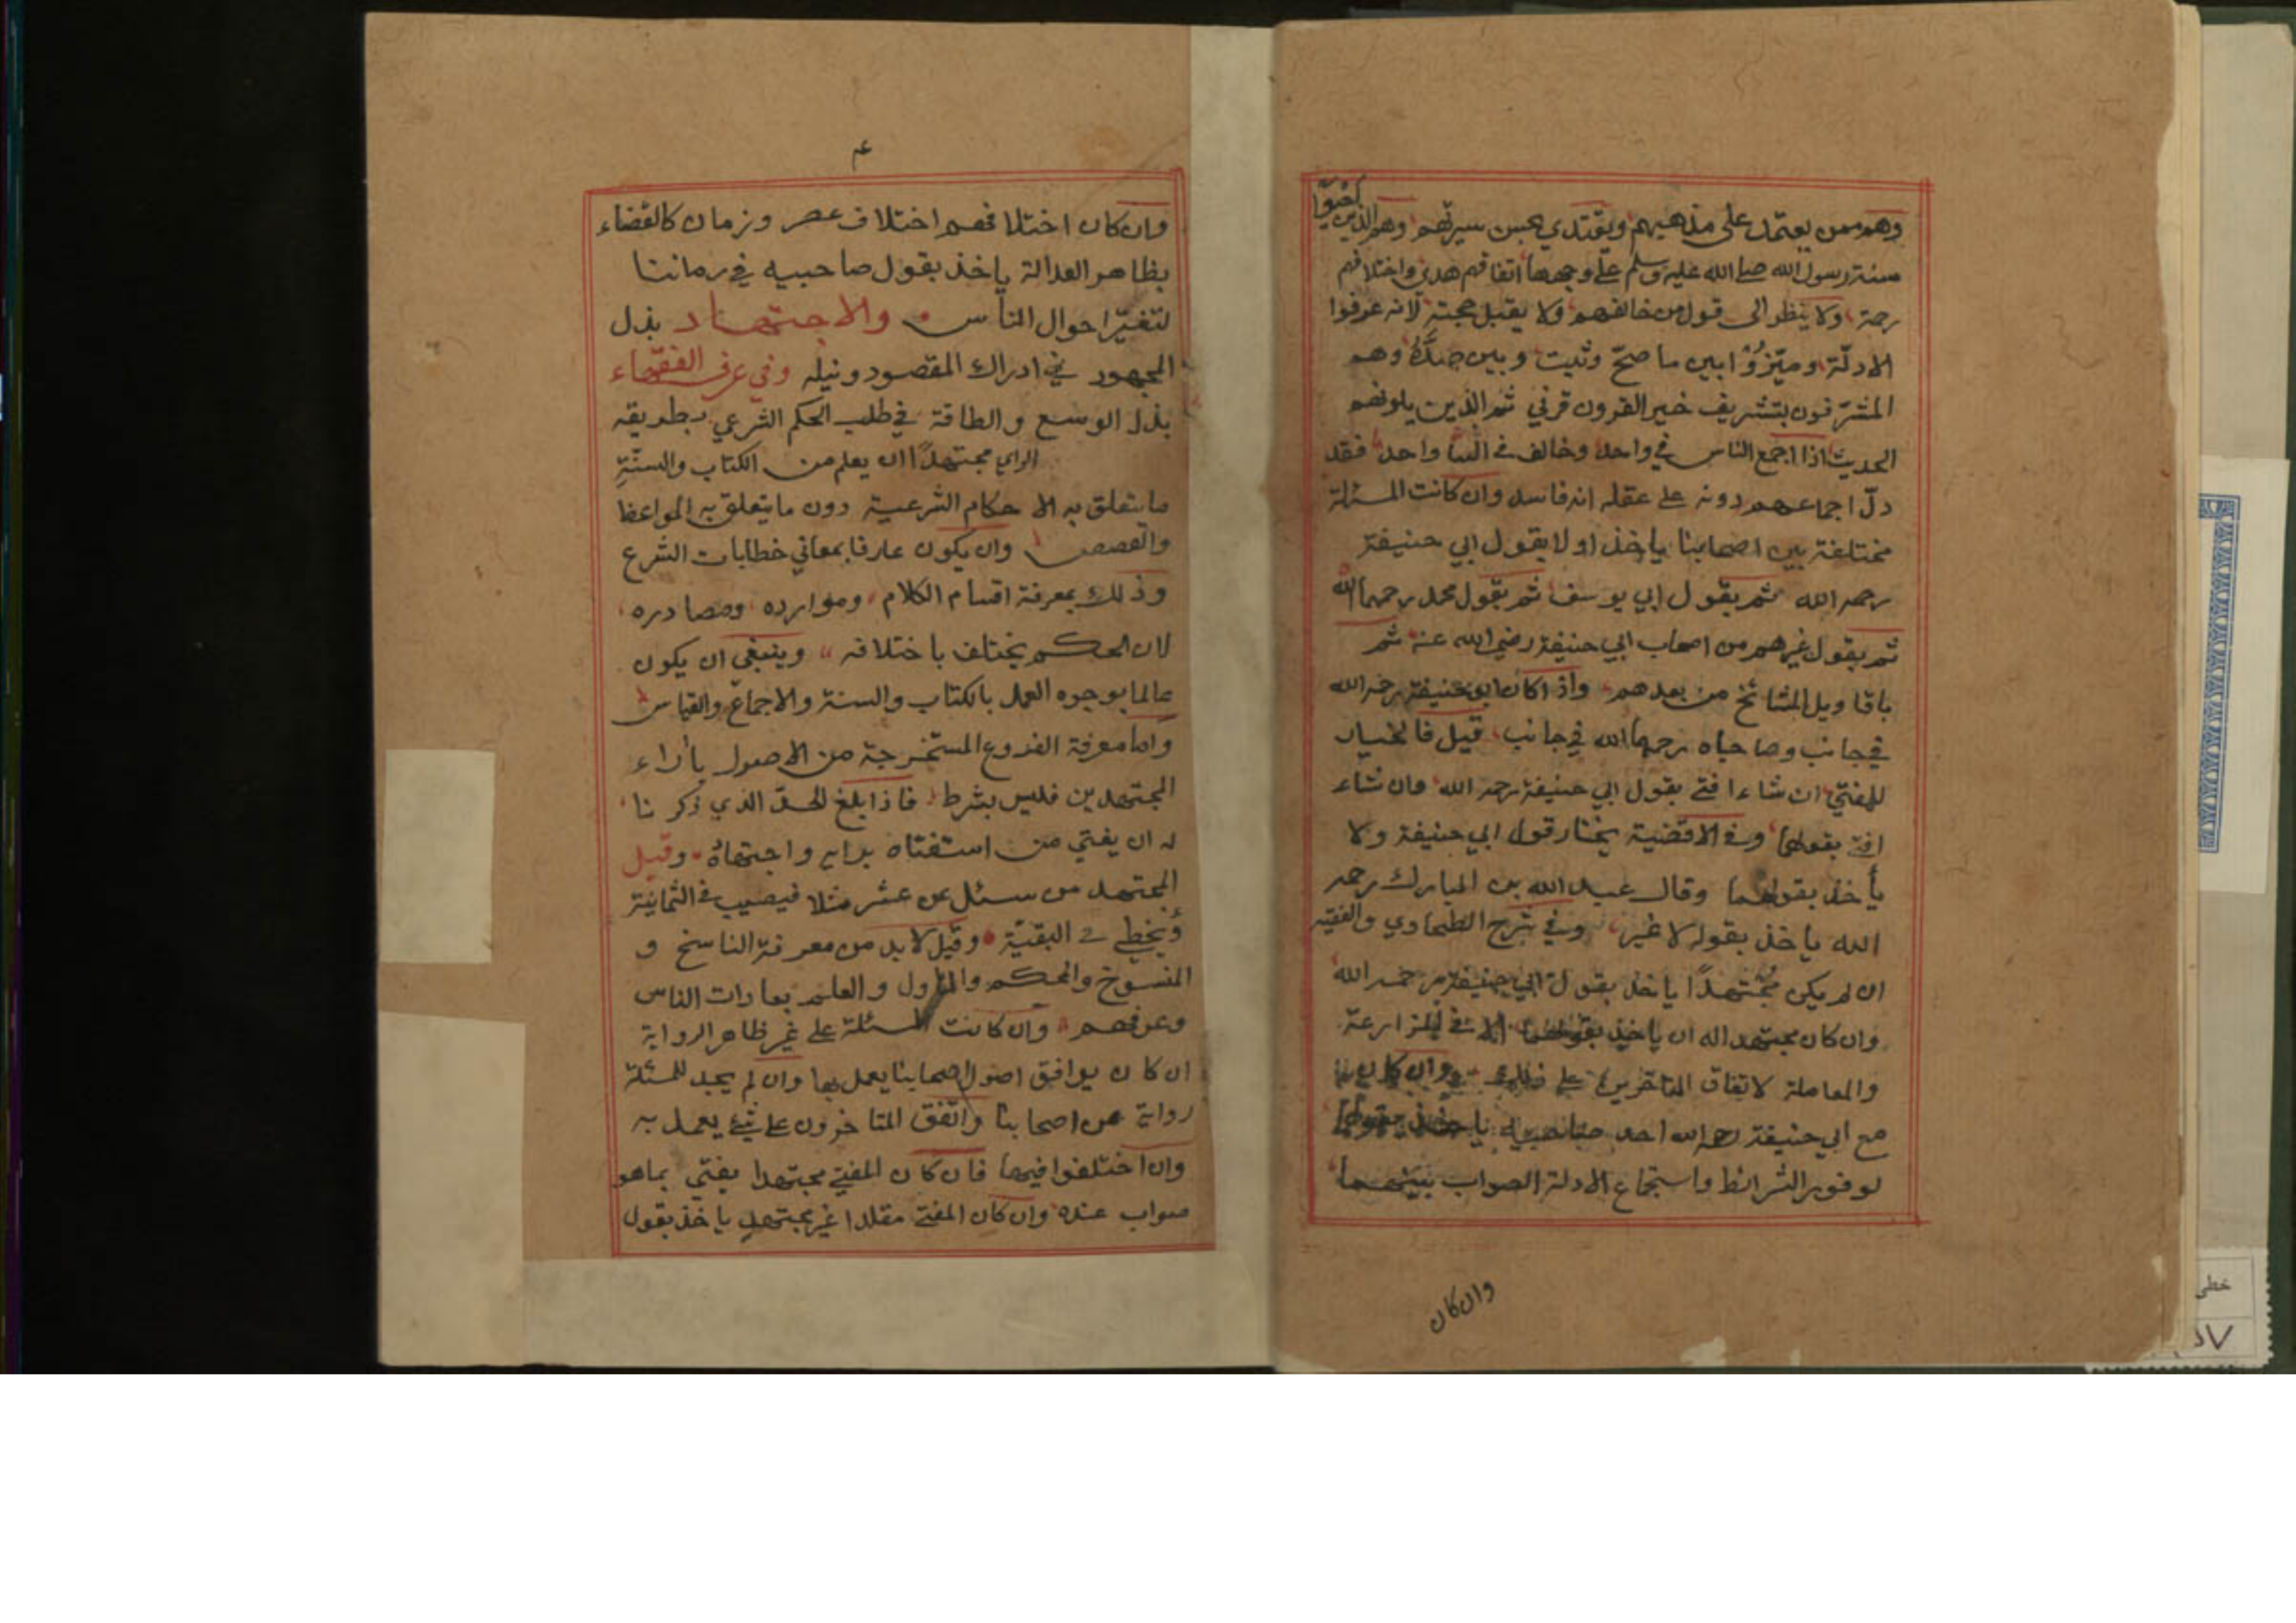 وهم ممن يعتمد على مذهبهم ويقتدي بحسن سيرتهم وهم الذين
سنة رسول الله صلى الله عليه وسلم على وجهها اتفاقهم هدى واختلافهم
رحمة ولا ينظر الى قول من خالفهم ولا يقبل حجته لانه عرفوا
الادلّة وميّزوا بين ما صحّ وثبت وبين ضدّه وهم
المشرّفون بتشريف خير القرون قرني ثم الذين يلونهم
الحديث اذا اجمع الناس في واحد وخالف في واحد فقد
دلّ اجماعهم دونه على عقله انه فاسد وان كانت المسئلة
مختلفة بين اصحابنا ياخذ اولا بقول ابي حنيفة
رحمه الله ثم بقول ابي يوسف ثم بقول محمد رحمهما الله
ثم بقول غيرهم من اصحاب ابي حنيفة رضي الله عنه ثم
باقاويل المشائخ من بعدهم واذا كان ابو حنيفة رحمه الله
في جانب وصاحباه رحمهما الله في جانب قيل فالخيار
للمفتي ان شاء افتى بقول ابي حنيفة رحمه الله وان شاء
افتى بقولهما وفي الاقضية يختار قول ابي حنيفة ولا
يأخذ بقولهما وقال عبد الله بن المبارك رحمه
الله ياخذ بقوله لا غير وفي شرح الطحاوي والفقيه
ان لم يكن مجتهدًا ياخذ بقول ابي حنيفة رحمه الله
وان كان مجتهدا له ان ياخذ بقولهما الا في المزارعة
والمعاملة لاتفاق المتاخرين على ذلك وان كان
مع ابي حنيفة رحمه الله احد صاحبيه ياخذ بقولهما
لوفور الشرائط واستجماع الادلة الصواب بينهما
وان كان
٤
وان كان اختلافهم اختلاف عصر وزمان كالقضاء
بظاهر العدالة ياخذ بقول صاحبيه في زماننا
لتغيّر احوال الناس والاجتهاد بذل
المجهود في ادراك المقصود ونيله وفي عرف الفقهاء
بذل الوسع والطاقة في طلب الحكم الشرعي بطريقه
الراي مجتهدًا ان يعلم من الكتاب والسنّةِ
ما يتعلق به الاحكام الشرعية دون ما يتعلق به المواعظ
والقصص وان يكون عارفا بمعاني خطابات الشرع
وذلك بمعرفة اقسام الكلام وموارده ومصادره
لان الحكم يختلف باختلافه وينبغي ان يكون
عالما بوجوه العمل بالكتاب والسنة والاجماع والقياس
واما معرفة الفروع المستخرجة من الاصول بآراء
المجتهدين فليس بشرط فاذا بلغ الحدّ الذي ذكرنا
له ان يفتي من استفتاه برايه واجتهاده وقيل
المجتهد من سئل عن عشر مثلا فيصيب في الثمانية
ويخطي في البقيّة وقيل لا بد من معرفة الناسخ و
المنسوخ والمحكم والماول والعلم بعادات الناس
وعرفهم وان كانت المسئلة على غير ظاهر الرواية
ان كان يوافق اصول اصحابنا يعمل بها وان لم يجد للمسئلة
رواية عن اصحابنا واتفق المتاخرون على شيء يعمل به
وان اختلفوا فيها فان كان المفتي مجتهدا يفتي بما هو
صواب عنده وان كان المفتي مقلدا غير مجتهدٍ ياخذ بقول
خطي